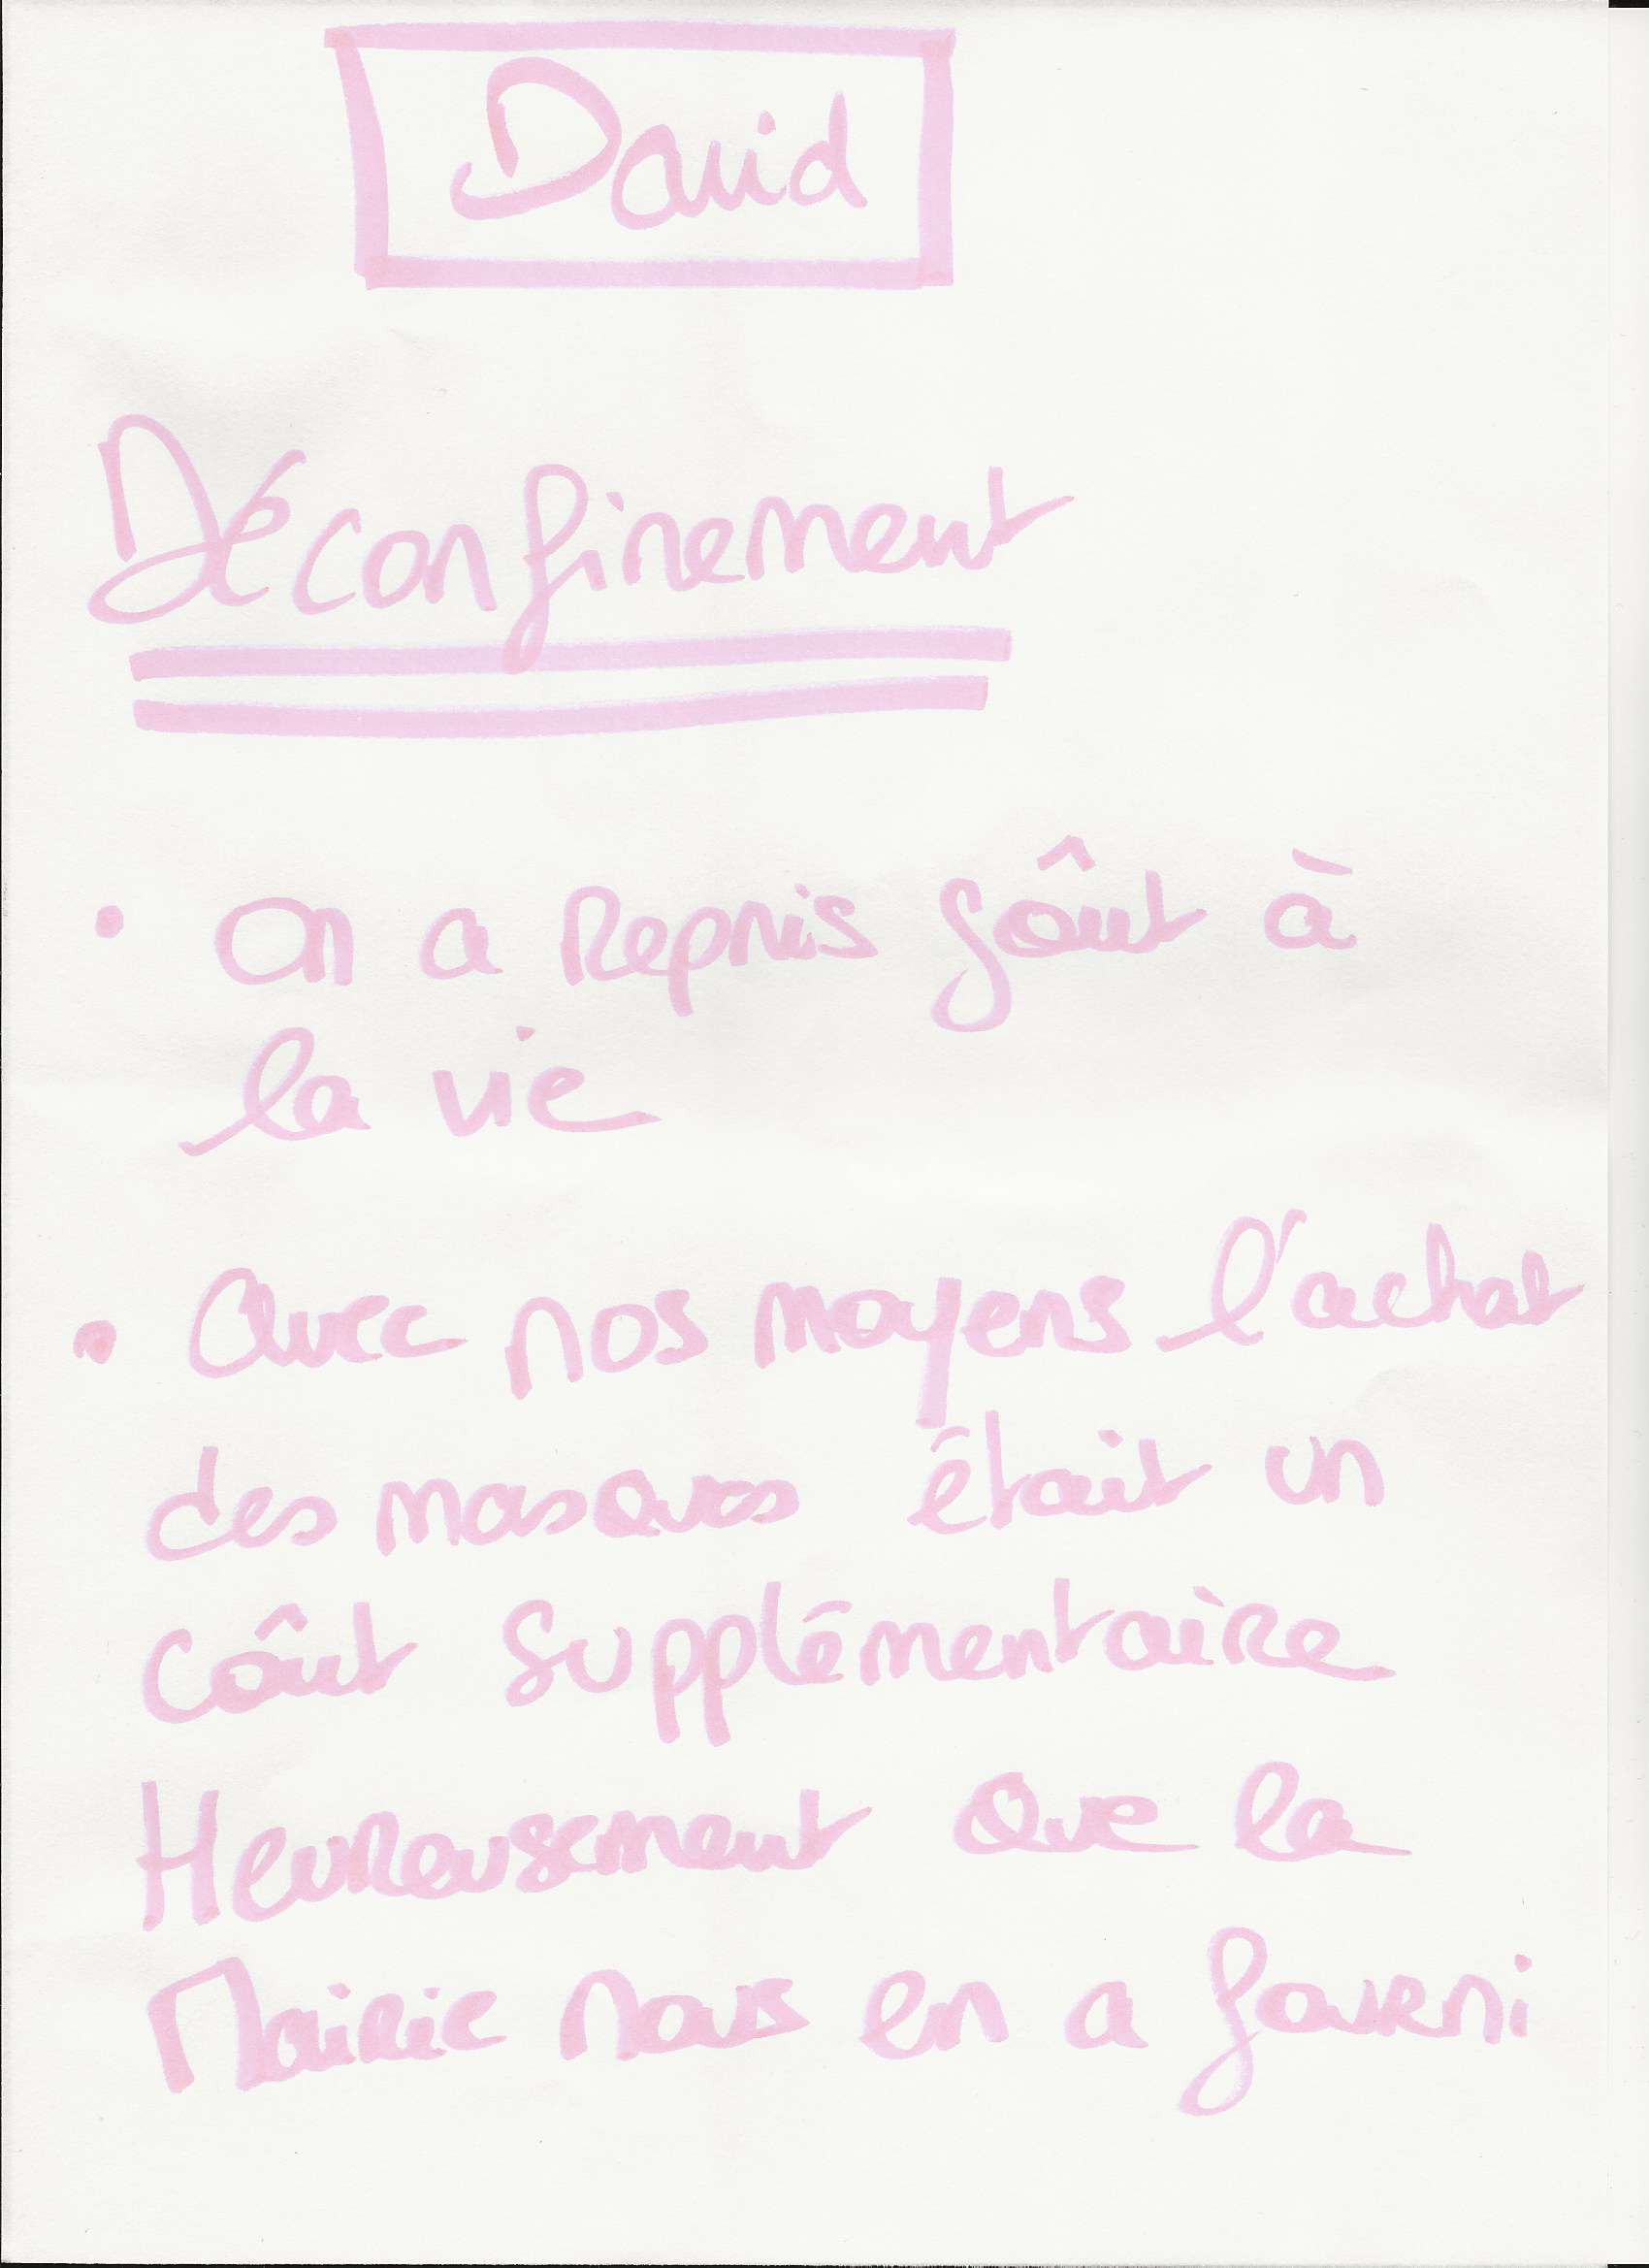 David
Déconfinement
• On a Repris goût à
la vie
• Avec nos moyens l'achat
des masques était un
coût supplémentaire
Heureusement que la
Mairie nous en a fourni